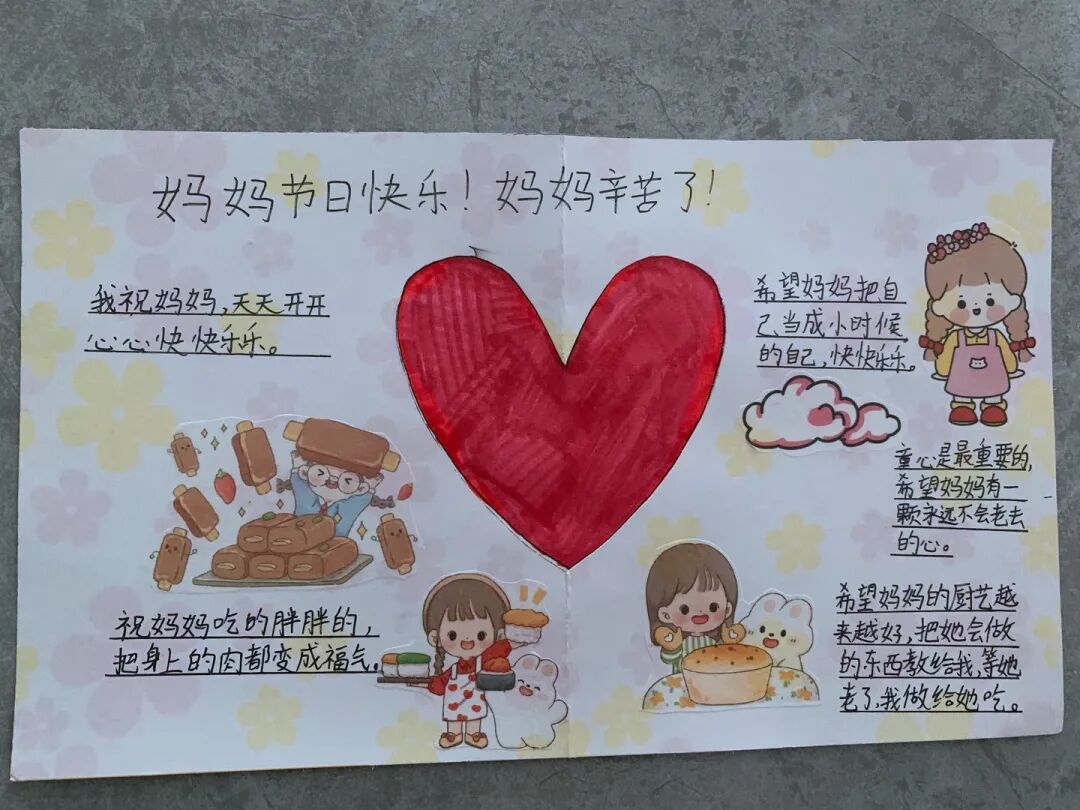 妈妈节日快乐！妈妈辛苦了！
我祝妈妈，天天开开
心心快快乐乐。
希望妈妈把自
己当成小时候
的自己，快快乐乐。
童心是最重要的，
希望妈妈有一
颗永远不会老去
的心。
祝妈妈吃的胖胖的，
把身上的肉都变成福气。
希望妈妈的厨艺越
来越好，把她会做
的东西教给我，等她
老了，我做给她吃。